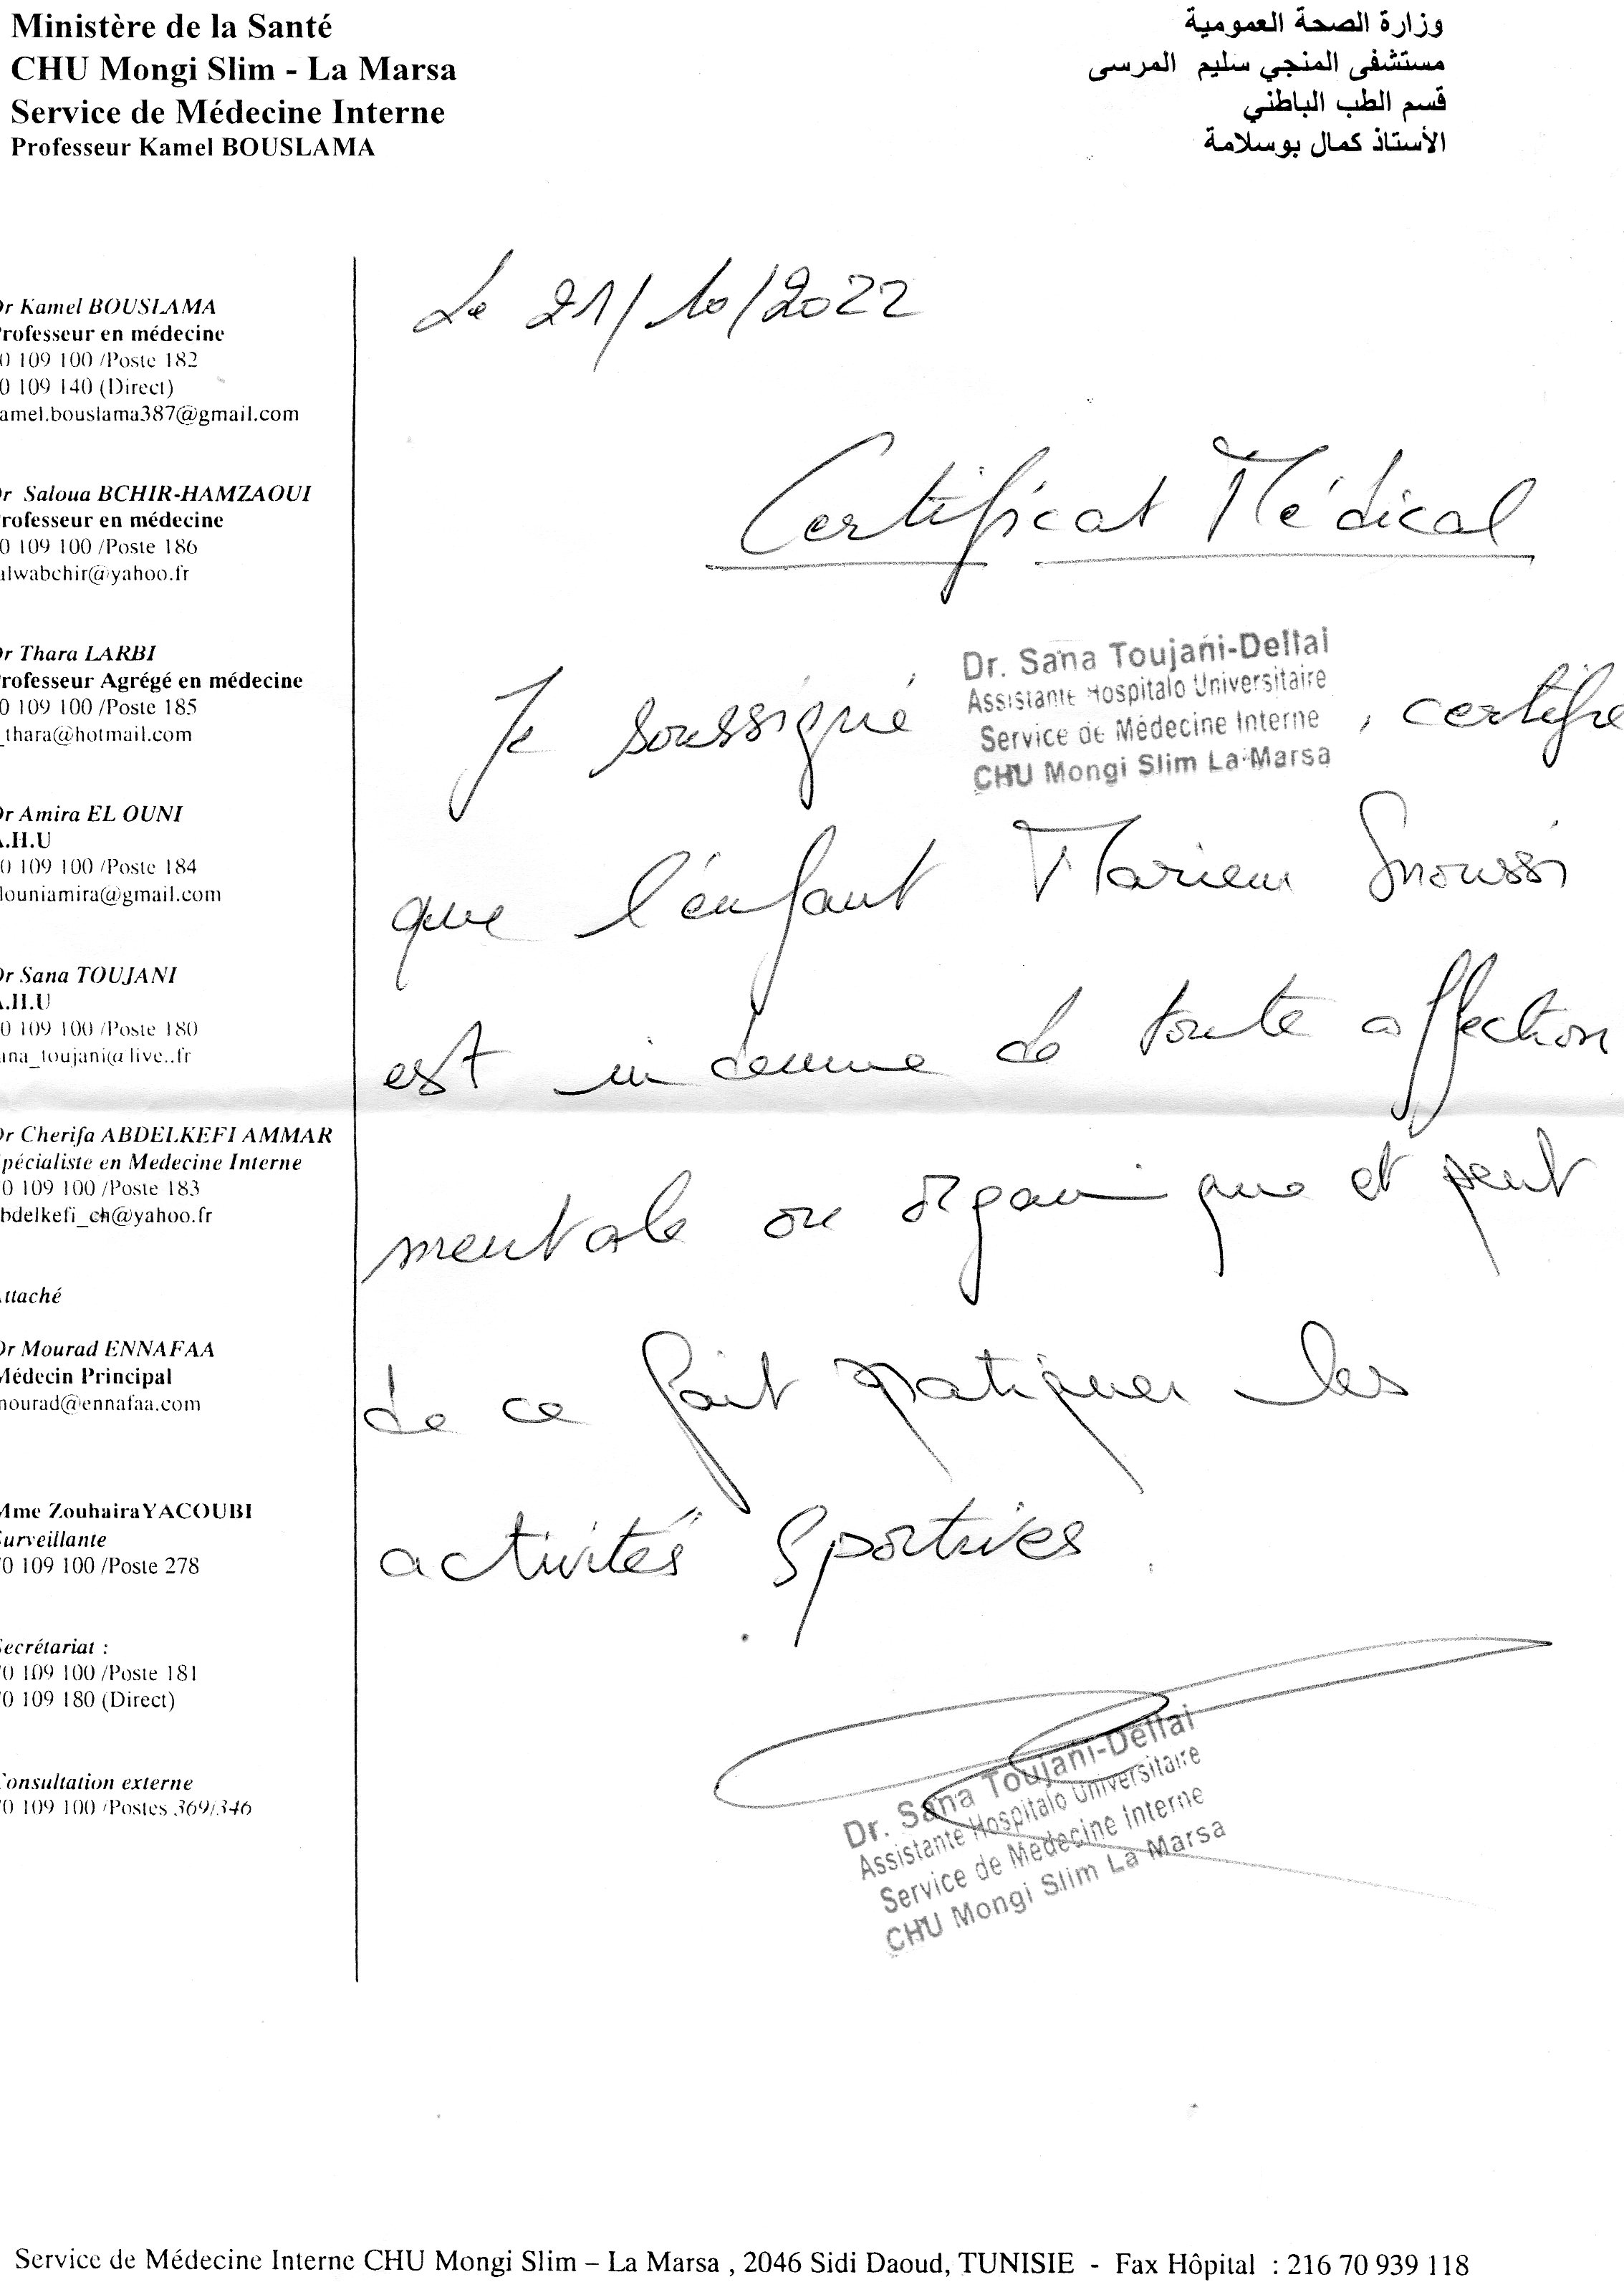 Ministère de la Santé
CHU Mongi Slim - La Marsa
Service de Médecine Interne
Professeur Kamel BOUSLAMA
وزارة الصحة العمومية
مستشفى المنجي سليم المرسى
قسم الطب الباطني
الأستاذ كمال بوسلامة
r Kamel BOUSLAMA
rofesseur en médecine
0 109 100 /Poste 182
0 109 140 (Direct)
amel.bouslama387@gmail.com
r Saloua BCHIR-HAMZAOUI
rofesseur en médecine
0 109 100 /Poste 186
alwabchir@yahoo.fr
r Thara LARBI
rofesseur Agrégé en médecine
0 109 100 /Poste 185
_thara@hotmail.com
Dr Amira EL OUNI
A.H.U
0 109 100 /Poste 184
louniamira@gmail.com
Dr Sana TOUJANI
A.H.U
0 109 100 /Poste 180
ana_toujani@live..fr
Dr Cherifa ABDELKEFI AMMAR
pécialiste en Medecine Interne
0 109 100 /Poste 183
bdelkefi_ch@yahoo.fr
Attaché
Dr Mourad ENNAFAA
Médecin Principal
mourad@ennafaa.com
Mme Zouhaira YACOUBI
urveillante
0 109 100 /Poste 278
Secrétariat :
0 109 100 /Poste 181
0 109 180 (Direct)
Consultation externe
0 109 100 /Postes 369/346
Le 21/10/2022
Certificat Médical
Je soussigné
Dr. Sana Toujani-Dellai
Assistante Hospitalo Universitaire
Service de Médecine Interne
CHU Mongi Slim La Marsa
, certifie
que l'enfant Mariem Snoussi
est indemne de toute affection
mentale ou organique et peut
de ce fait pratiquer les
activités sportives.
Dr. Sana Toujani-Dellai
Assistante Hospitalo Universitaire
Service de Médecine Interne
CHU Mongi Slim La Marsa
Service de Médecine Interne CHU Mongi Slim – La Marsa , 2046 Sidi Daoud, TUNISIE - Fax Hôpital : 216 70 939 118